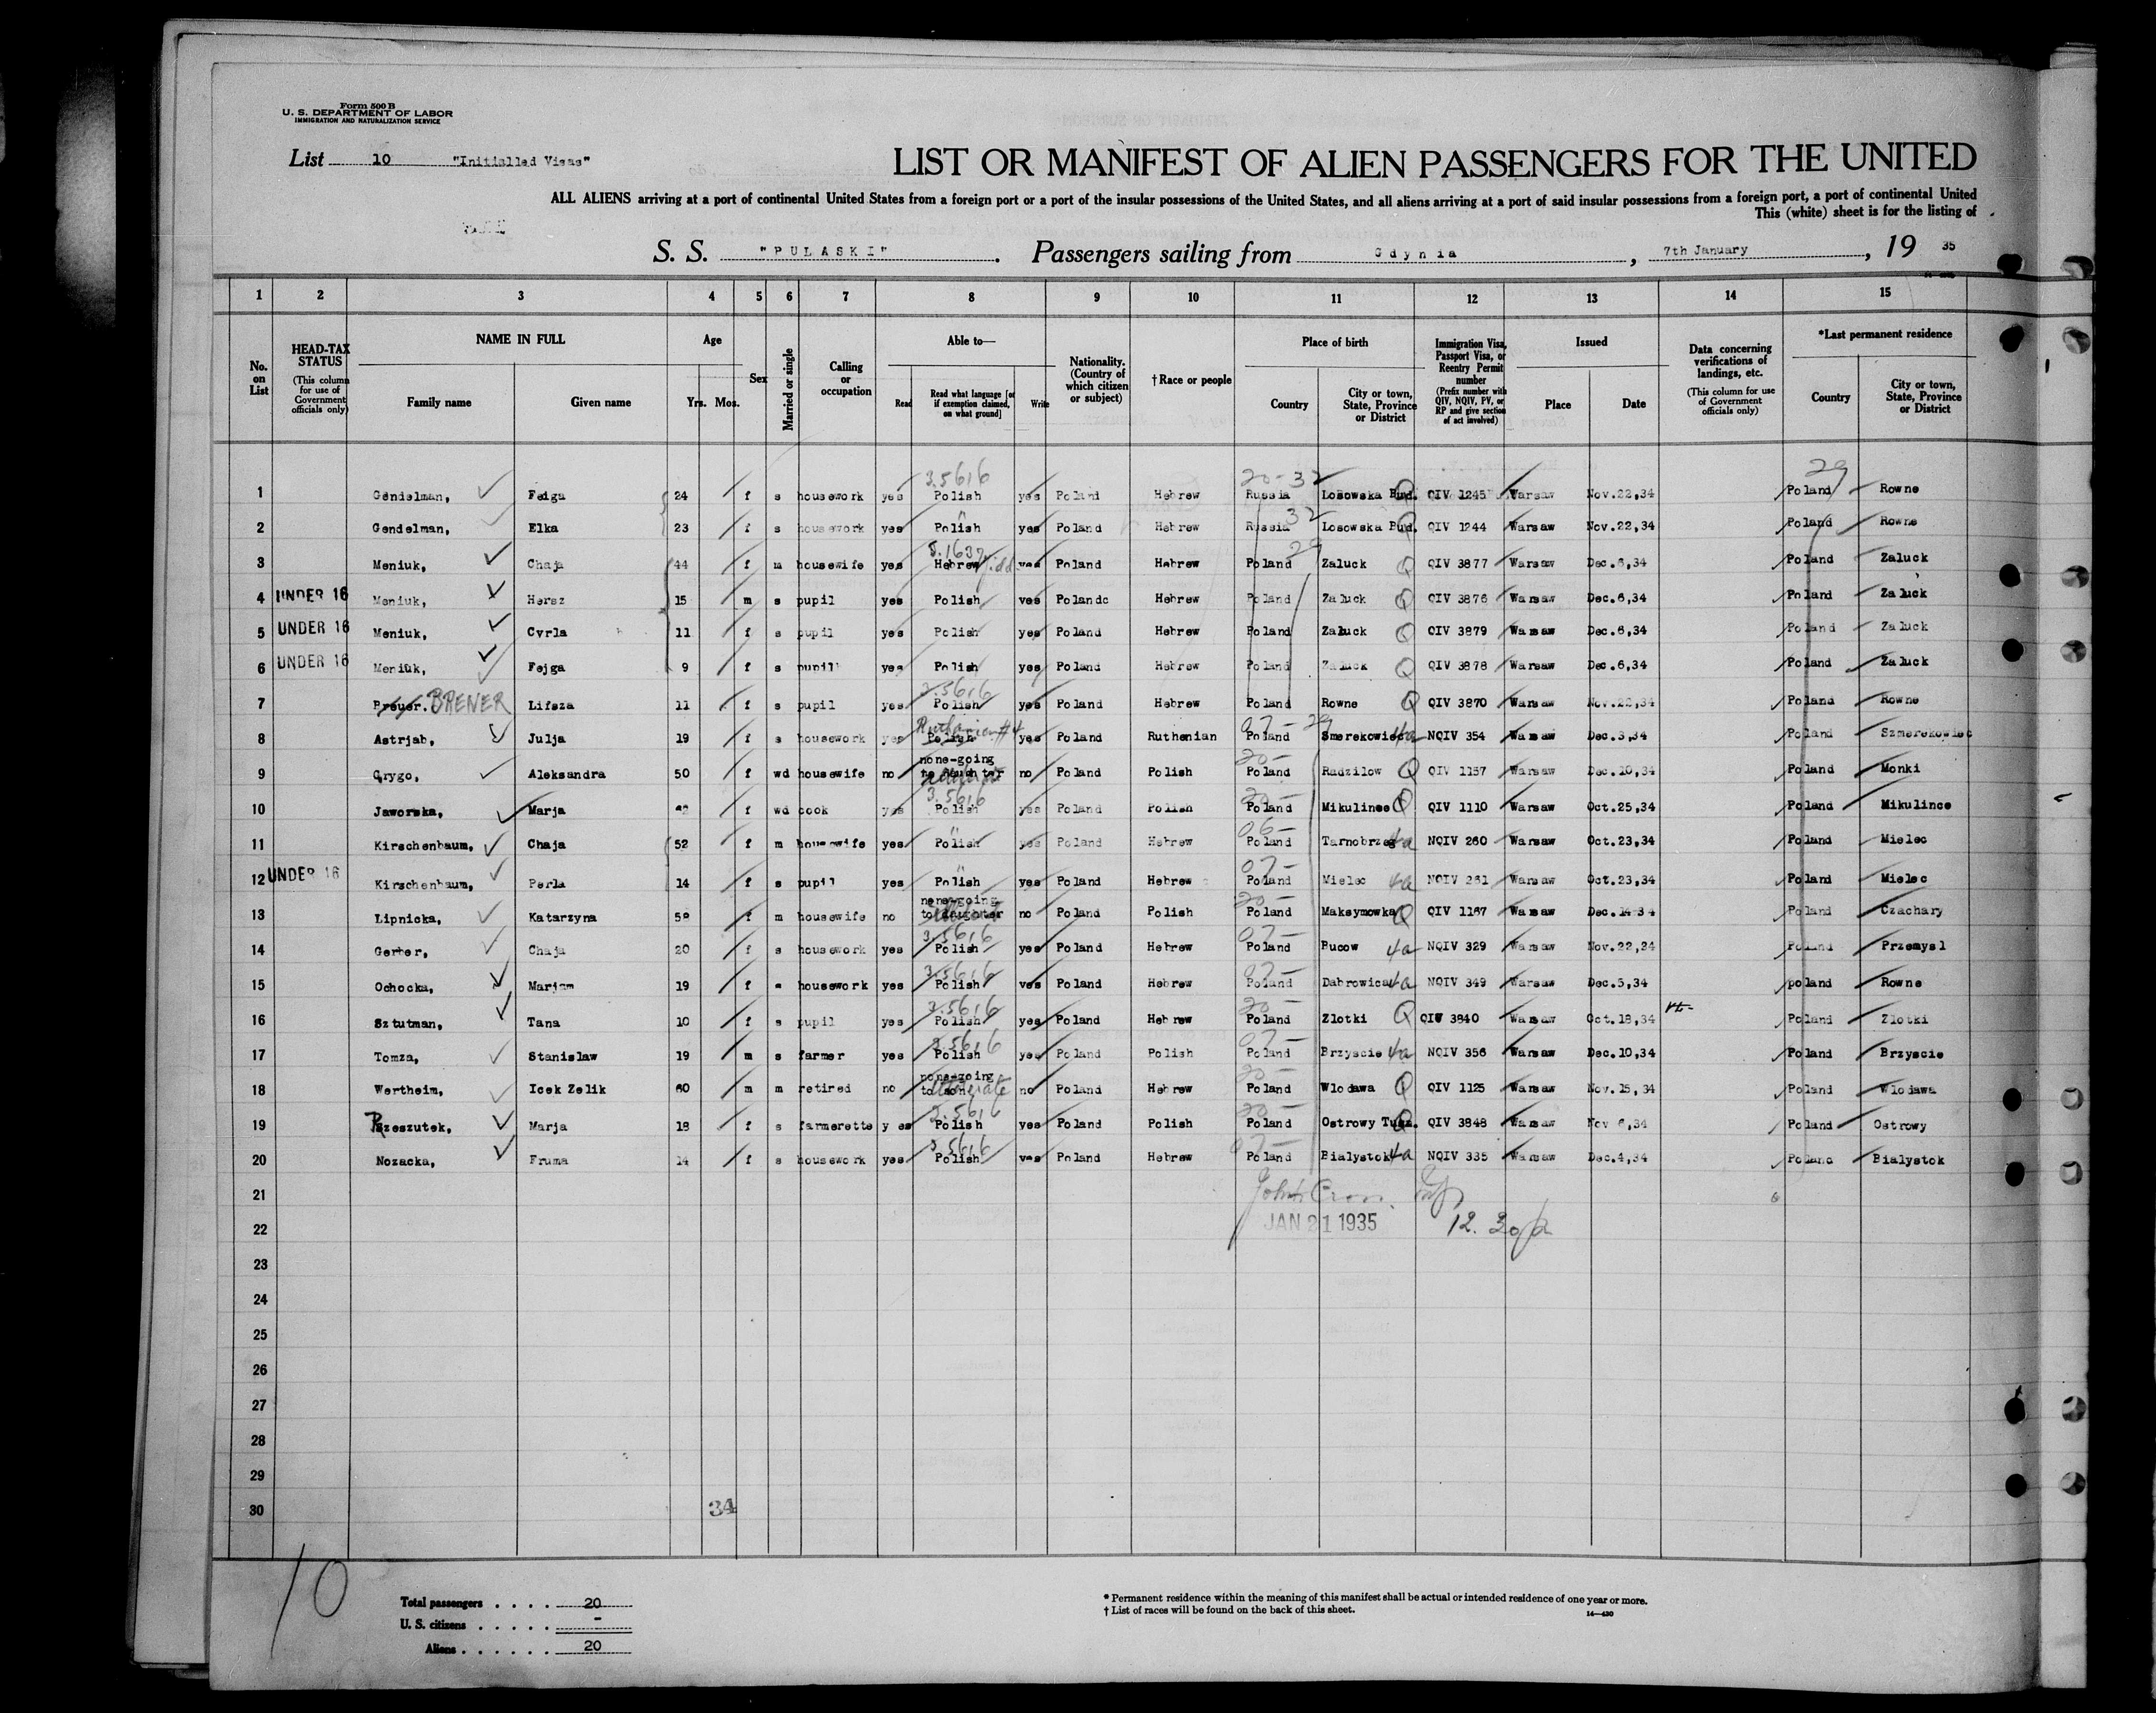 Form 500 B
U. S. DEPARTMENT OF LABOR
IMMIGRATION AND NATURALIZATION SERVICE
List 10 "Initislled Visas"
LIST OR MANIFEST OF ALIEN PASSENGERS FOR THE UNITED
ALL ALIENS arriving at a port of continental United States from a foreign port or a port of the insular possessions of the United States, and all aliens arriving at a port of said insular possessions from a foreign port, a port of continental United
This (white) sheet is for the listing of
S. S. "PULASKI". Passengers sailing from Gdynia, 7th January, 19 35
1 2 3 4 5 6 7 8 9 10 11 12 13 14 15
No. on List
HEAD-TAX STATUS (This column for use of Government officials only)
NAME IN FULL Family name Given name
Age Yrs. Mos.
Sex
Married or single
Calling or occupation
Able to— Read Read what language [or if exemption claimed, on what ground] Write
Nationality. (Country of which citizen or subject)
†Race or people
Place of birth Country City or town, State, Province or District
Immigration Visa, Passport Visa, or Reentry Permit number (Prefix number with QIV, NQIV, PV, or RP and give section of act involved)
Issued Place Date
Data concerning verifications of landings, etc. (This column for use of Government officials only)
*Last permanent residence Country City or town, State, Province or District
3.5616 20-32 29
1 Gendelman, Feiga 24 f s housework yes Polish yes Poland Hebrew Russia Losowska Bud. Q QIV 1245 Warsaw Nov.22,34 Poland Rowne
2 Gendelman, Elka 23 f s housework yes Polish yes Poland Hebrew Russia 32 Losowska Bud. Q QIV 1244 Warsaw Nov.22,34 Poland Rowne
3 Meniuk, Chaja 44 f m housewife yes Hebrew Yidd. yes Poland Hebrew Poland 29 Zaluck Q QIV 3877 Warsaw Dec.6,34 Poland Zaluck
4 UNDER 16 Meniuk, Hersz 15 m s pupil yes Polish yes Polandc Hebrew Poland Zaluck Q QIV 3876 Warsaw Dec.6,34 Poland Zaluck
5 UNDER 16 Meniuk, Cyrla 11 f s pupil yes Polish yes Poland Hebrew Poland Zaluck Q QIV 3879 Warsaw Dec.6,34 Poland Zaluck
6 UNDER 16 Meniuk, Fejga 9 f s pupil yes Polish yes Poland Hebrew Poland Zaluck Q QIV 3878 Warsaw Dec.6,34 Poland Zaluck
7 Breuer. BRENER Lifsza 11 f s pupil yes 3.5616 Polish yes Poland Hebrew Poland Rowne Q QIV 3870 Warsaw Nov.22,34 Poland Rowne
8 Astrjab, Julja 19 f s housework yes Ruthenian #4 Polish yes Poland Ruthenian 07- 29 Poland Smerekowiec 4a NQIV 354 Warsaw Dec.3,34 Poland Szmerekowiec
9 Grygo, Aleksandra 50 f wd housewife no none-going to daughter no Poland Polish 20- Poland Radzilow Q QIV 1157 Warsaw Dec.10,34 Poland Monki
10 Jaworska, Marja f wd cook yes 3.5616 Polish yes Poland Polish 20- Poland Mikulince Q QIV 1110 Warsaw Oct.25,34 Poland Mikulince
11 Kirschenbaum, Chaja 52 f m housewife yes " Polish yes Poland Hebrew 06- Poland Tarnobrzeg 4a NQIV 260 Warsaw Oct.23,34 Poland Mielec
12 UNDER 16 Kirschenbaum, Perla 14 f s pupil yes " Polish yes Poland Hebrew 07- Poland Mielec 4a NQIV 261 Warsaw Oct.23,34 Poland Mielec
13 Lipnicka, Katarzyna f m housewife no none-going to daughter no Poland Polish 20- Poland Maksymowka Q QIV 1167 Warsaw Dec.14 34 Poland Czachary
14 Gerber, Chaja 20 f s housework yes 3.5616 Polish yes Poland Hebrew 07- Poland Bucow 4a NQIV 329 Warsaw Nov.22,34 Poland Przemysl
15 Ochocka, Marjam 19 f s housework yes 3.5616 Polish yes Poland Hebrew 07- Poland Dabrowica 4a NQIV 349 Warsaw Dec.5,34 poland Rowne
16 Sztutman, Tana 10 f s pupil yes 3.5616 Polish yes Poland Hebrew 20- Poland Zlotki Q QIV 3840 Warsaw Oct.18,34 Poland Zlotki
17 Tomza, Stanislaw 19 m s farmer yes 3.5616 Polish yes Poland Polish 07- Poland Brzyscie 4a NQIV 356 Warsaw Dec.10,34 Poland Brzyscie
18 Wertheim, Icek Zelik 60 m m retired no none-going to son no Poland Hebrew 20- Poland Wlodawa Q QIV 1125 Warsaw Nov.15,34 Poland Wlodawa
19 Rzeszutek, Marja 18 f s farmerette y es 3.5616 Polish yes Poland Polish 20- Poland Ostrowy Tusz. Q QIV 3848 Warsaw Nov 6,34 Poland Ostrowy
20 Nozacka, Fruma 14 f s housework yes 3.5616 Polish yes Poland Hebrew 07- Poland Bialystok 4a NQIV 335 Warsaw Dec.4,34 Poland Bialystok
21
JAN 21 1935 12.30p
22
23
24
25
26
27
28
29
30 34
10
Total passengers . . . . 20
U. S. citizens . . . . . -
Aliens . . . . . . 20
* Permanent residence within the meaning of this manifest shall be actual or intended residence of one year or more.
† List of races will be found on the back of this sheet.
14—430